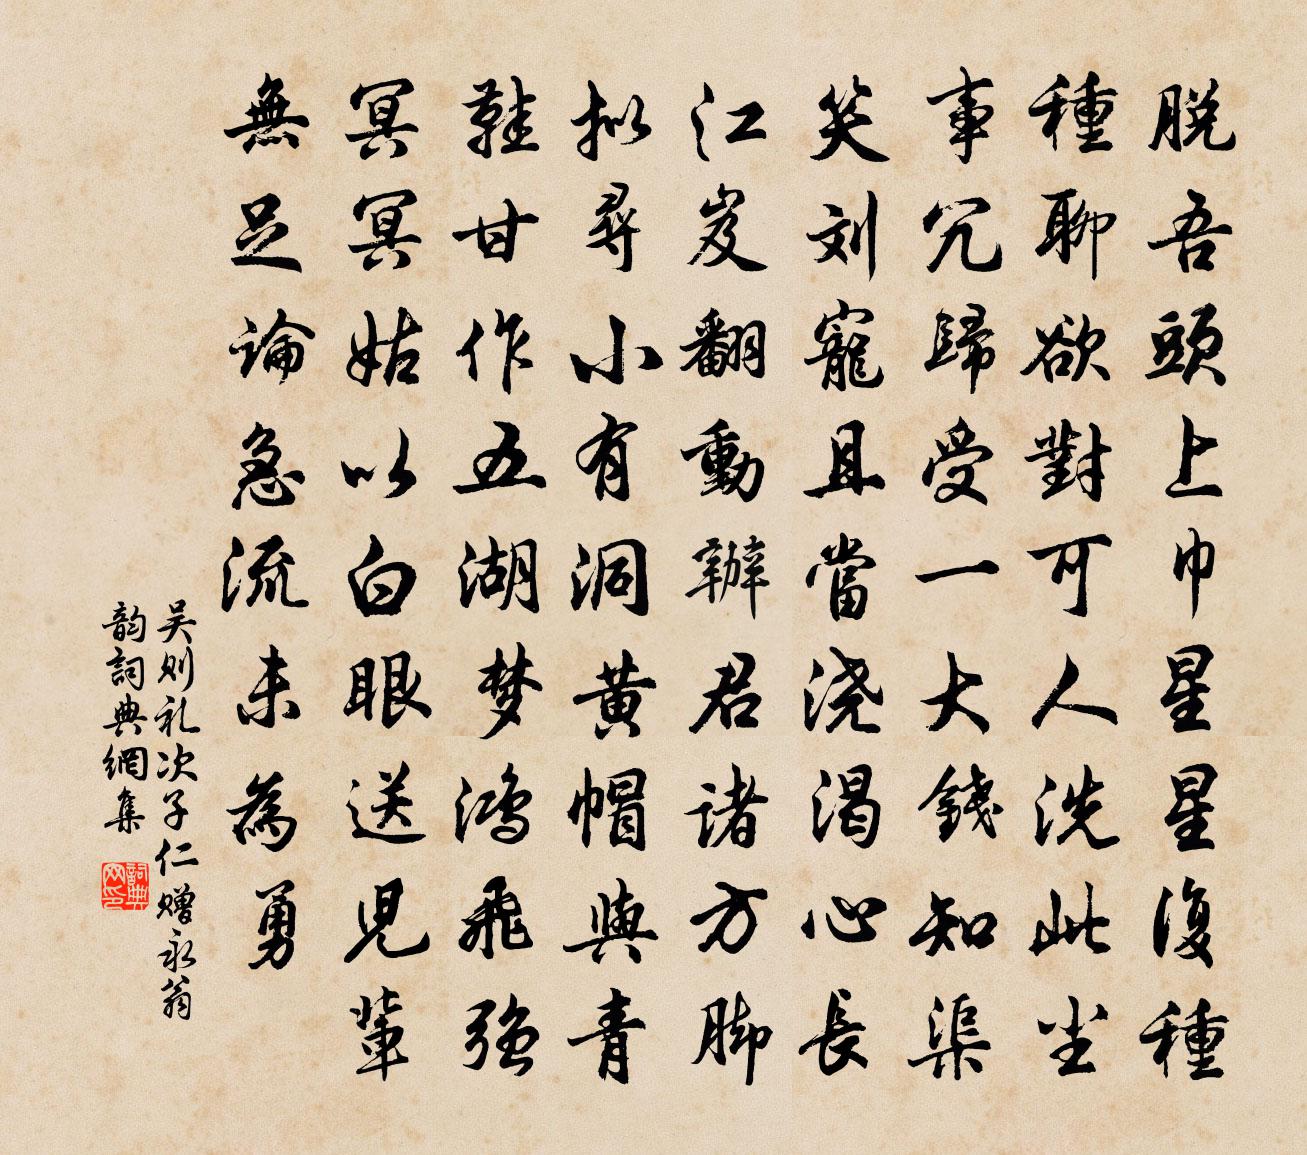 脱吾頭上巾星星復種
種聊欲對可人洗此尘
事冗歸受一大錢知渠
笑刘寵且當浇渴心長
江岌翻動辦君诸方脚
拟尋小有洞黄帽與青
鞋甘作五湖梦鸿飛强
冥冥姑以白眼送兒輩
無足論急流未為勇
吴则礼次子仁赠永翁
韵詞典網集
詞典网印